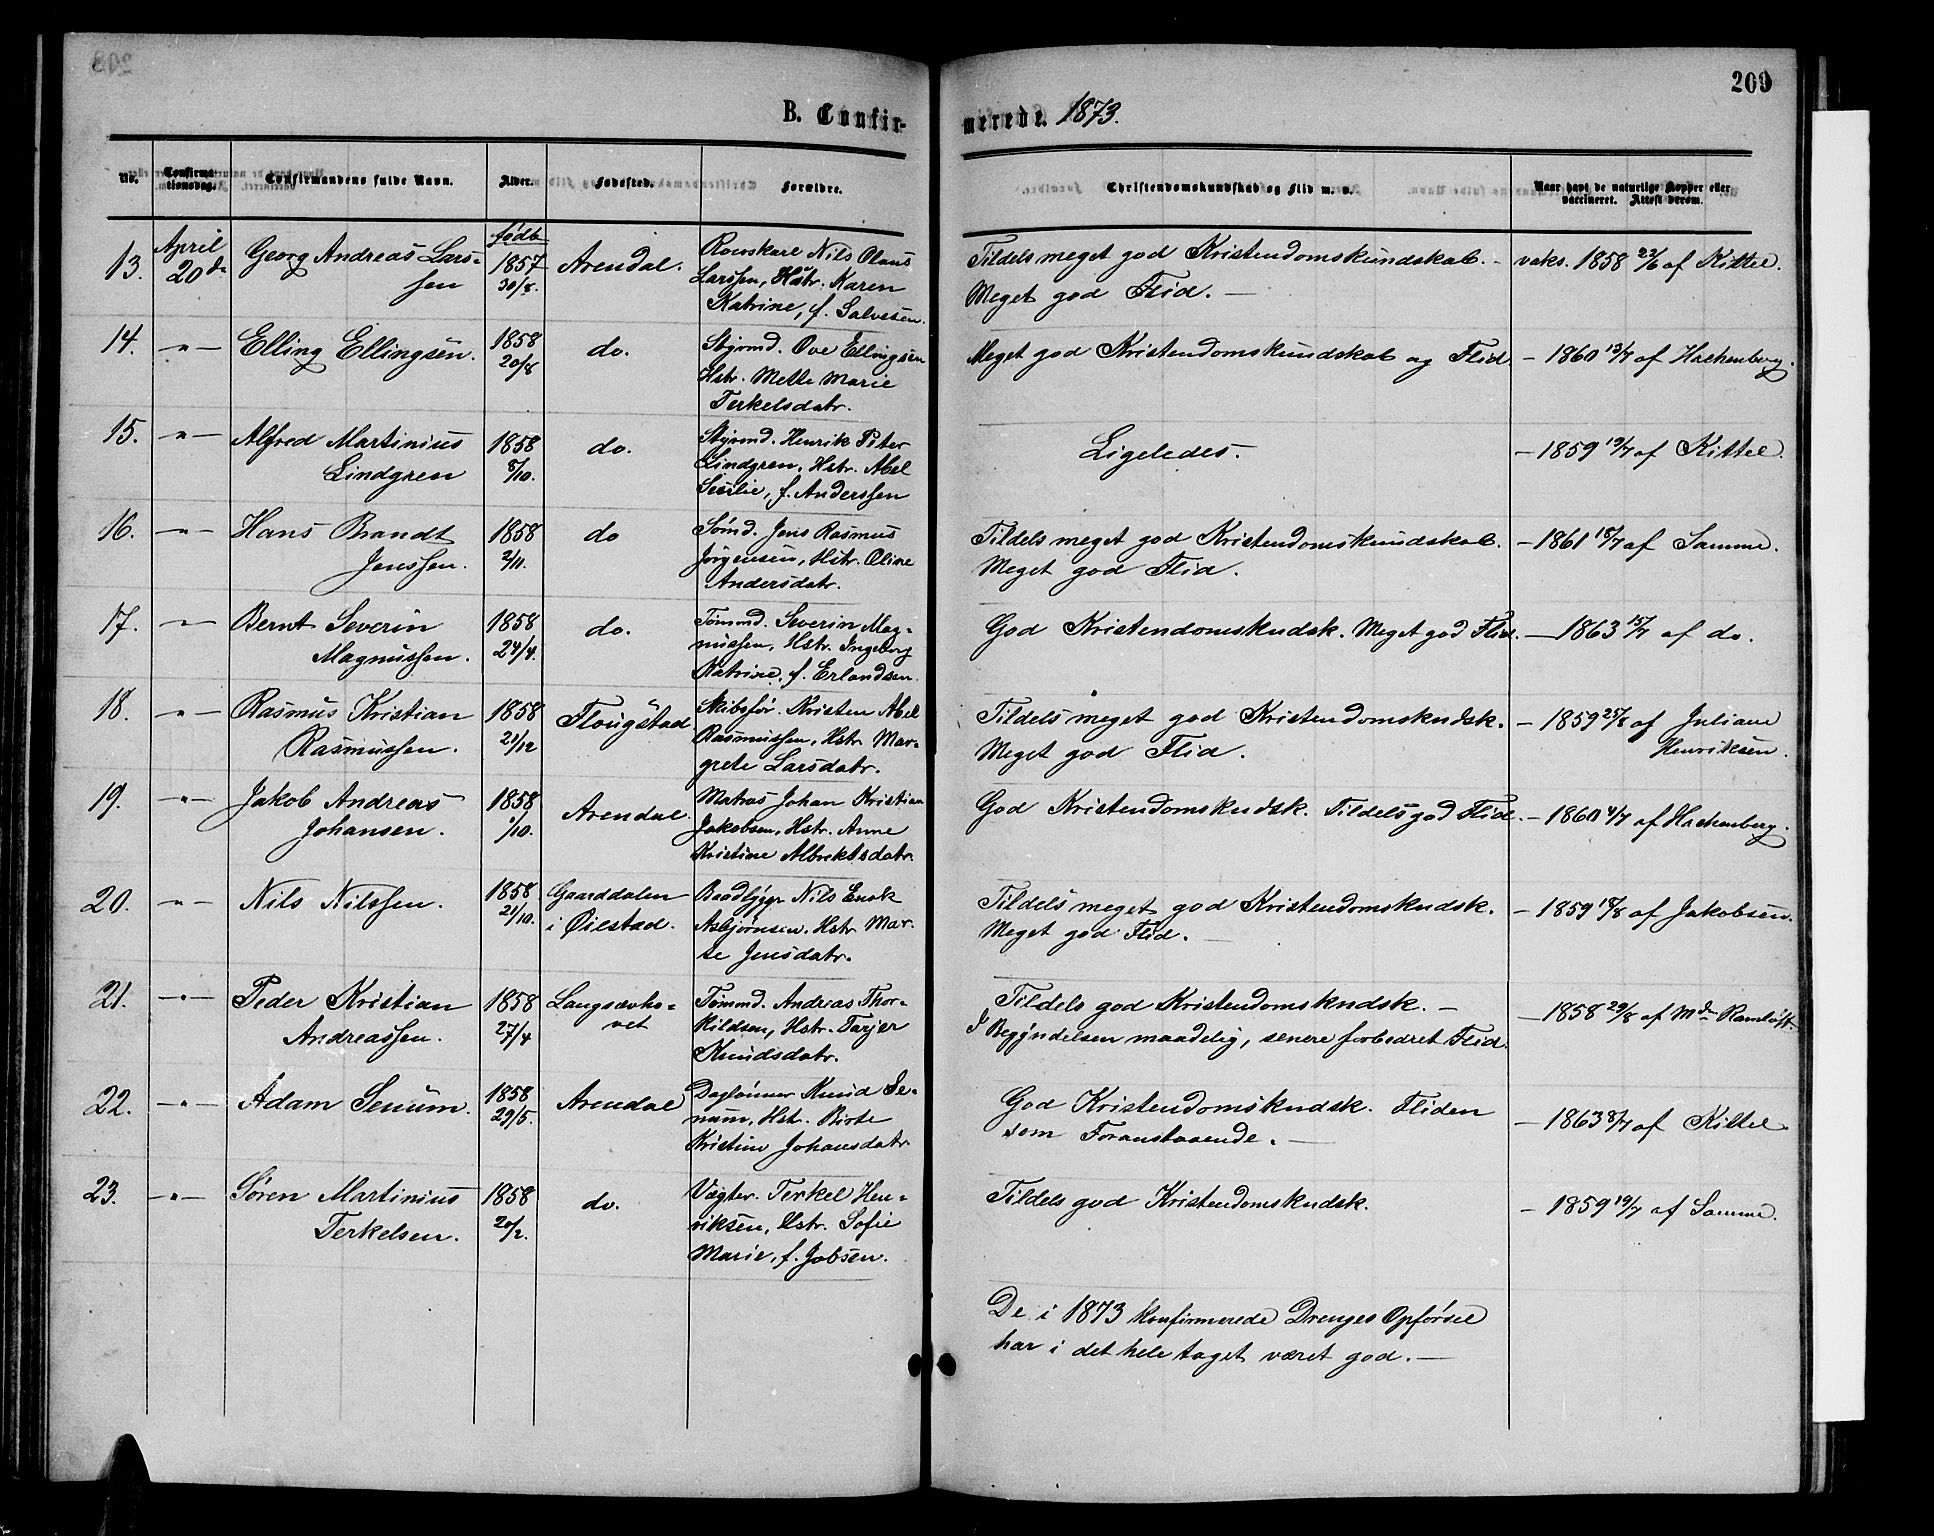 209
B. Confirmerede. 1873.
No. Confirmationsdag. Confirmandens fulde Navn. Alder. Fødested. Forældre. Christendomskundskab og Flid m. v. Naar havt de naturlige Kopper eller vaccineret. Attest derom.
født
13. April 20de Georg Andreas Larssen 1857 30/8. Arendal. Nils Olaus Larssen, Hstr. Karen Katrine, f. Salvesen. Tildels meget god Kristendomskundskab. – Meget god Flid. – vaks. 1858 22/6 af Kittel.
14. –"– Elling Ellingsen. 1858 20/8 do. Styrmd. Ove Ellingsen Hstr. Mette Marie Terkelsdatr. Meget god Kristendomskundskab og Flid. – 1860 13/7 af Hachenberg.
15. –"– Alfred Martinius Lindgren 1858 8/10. do. Styrmd. Henrik Peter Lindgren, Hstr. Abel Secilie, f. Anderssen Ligeledes. – 1859 19/7 af Kittel.
16. –"– Hans Brandt Jenssen. 1858 2/11. do Sømd. Jens Rasmus Jørgensen, Hstr. Oline Andersdatr. Tildels meget god Kristendomskundskab. Meget god Flid. – 1861 18/7 af Samme.
17. –"– Bernt Severin Magnussen. 1858 24/4. do. Tømmd. Severin Magnussen, Hstr. Ingeborg Katrine, f. Erlandsen. God Kristendomskndsk. Meget god Flid. – 1863 15/7 af do.
18. –"– Rasmus Kristian Rasmussen. 1858 21/12 Flougstad Skibsfør. Kristen Abel Rasmussen, Hstr. Margrete Larsdatr. Tildels meget god Kristendomskndsk. Meget god Flid. – 1859 25/8 af Juliane Henriksen.
19. –"– Jakob Andreas Johansen. 1858 1/10. Arendal. Matros Johan Kristian Jakobsen, Hstr. Anne Kristine Albrektsdatr. God Kristendomskndsk. Tildels god Flid. – 1860 4/7 af Hachenberg.
20. –"– Nils Nilssen. 1858 21/10. Gaarddalen i Øiestad. Baadbyggr Nils Enok Asbjørnsen, Hstr. Marte Jensdatr. Tildels meget god Kristendomskndsk. Meget god Flid. – – 1859 18/8 af Jakobsen.
21. –"– Peder Kristian Andreassen. 1858 27/4 Langsævhovet Tømmd. Andreas Thorkildsen, Hstr. Tarjer Knudsdatr. Tildels god Kristendomskndsk. – I Begyndelsen maadelig, senere forbedret Flid. – 1858 29/8 af Mde Ramløst.
22. –"– Adam Senum. 1858 29/5. Arendal Daglønner Knud Senum, Hstr. Birte Kristine Johansdatr. God Kristendomskndsk. Fliden som Foranstaaende. – – 1863 8/7 af Kittel.
23. –"– Søren Martinius Terkelsen. 1858 20/2. do. Vægter Terkel Henriksen, Hstr. Sofie Marie, f. Jobsen. Tildels god Kristendomskndsk. – 1859 19/7 af Samme.
De i 1873 konfirmerede Drenges Opførsel
har i det hele taget været god. –